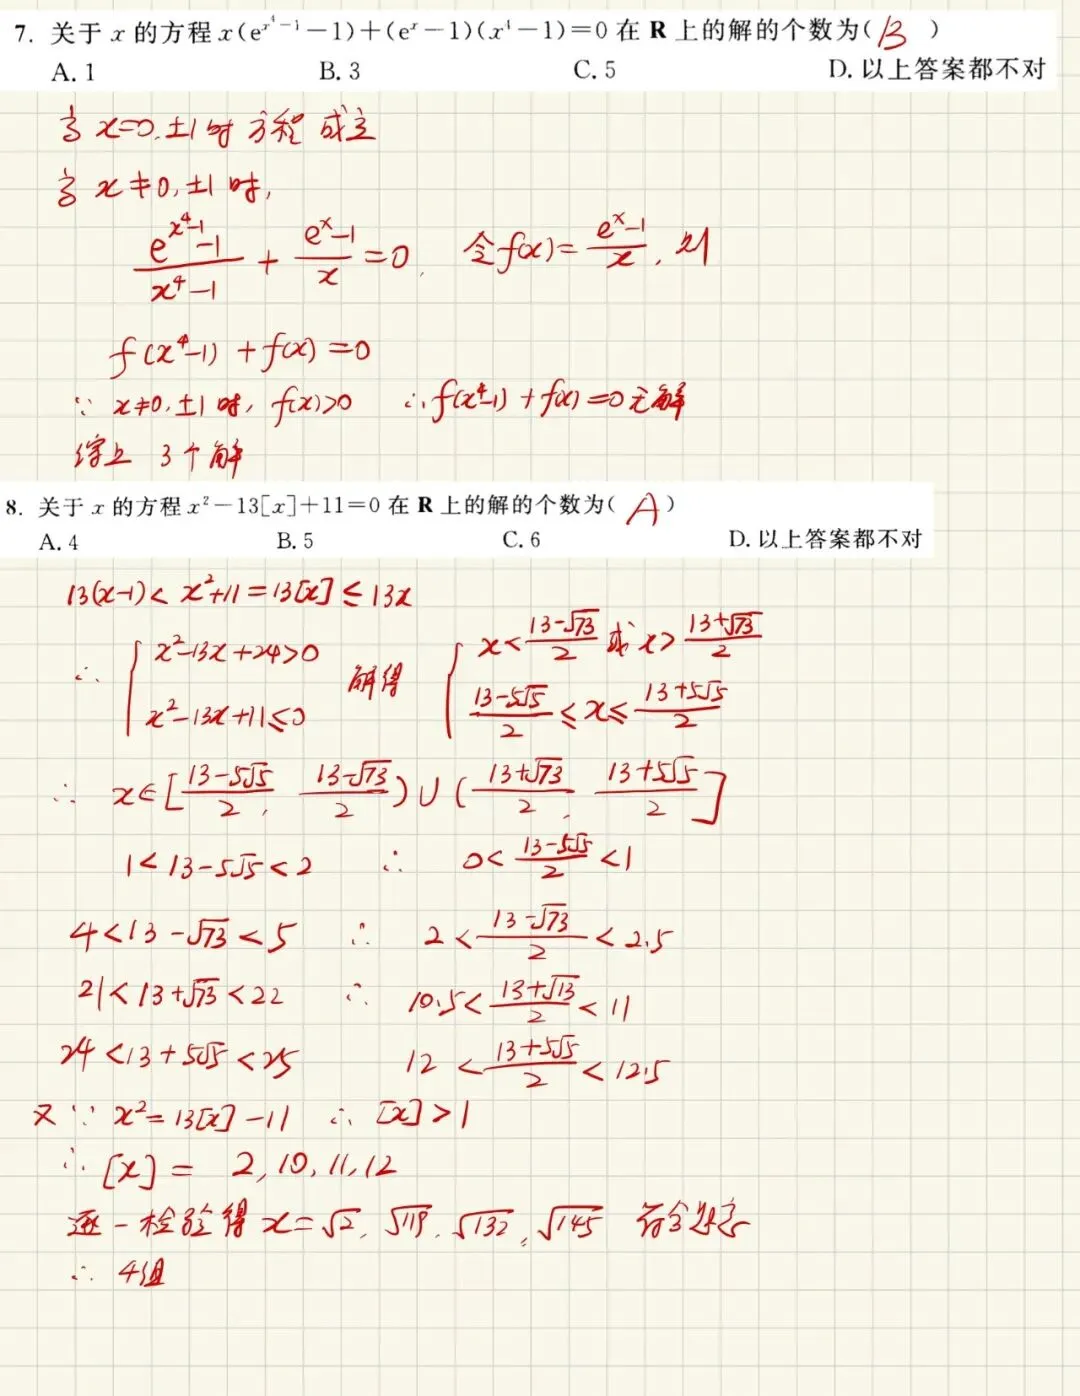 7. 关于 x 的方程 x(e^{x⁴-1}-1)+(eˣ-1)(x⁴-1)=0 在 R 上的解的个数为( B )
A. 1 B. 3 C. 5 D. 以上答案都不对
当 x=0, ±1 时 方程 成立
当 x≠0, ±1 时,
(e^{x⁴-1}-1)/(x⁴-1) + (eˣ-1)/x = 0, 令 f(x)= (eˣ-1)/x, 则
f(x⁴-1) + f(x) = 0
∵ x≠0, ±1 时, f(x)>0 ∴ f(x⁴-1) + f(x) = 0 无解
综上 3个解
8. 关于 x 的方程 x²-13[x]+11=0 在 R 上的解的个数为( A )
A. 4 B. 5 C. 6 D. 以上答案都不对
13(x-1) < x²+11 = 13[x] ≤ 13x
∴ { x²-13x+24>0 x²-13x+11≤0 解得 { x< (13-√73)/2 或 x> (13+√73)/2 (13-5√5)/2 ≤ x ≤ (13+5√5)/2
∴ x∈[(13-5√5)/2, (13-√73)/2) ∪ ((13+√73)/2, (13+5√5)/2]
1<13-5√5<2 ∴ 0< (13-5√5)/2 <1
4<13-√73<5 ∴ 2< (13-√73)/2 <2.5
21<13+√73<22 ∴ 10.5< (13+√13)/2 <11
24<13+5√5<25 12 < (13+5√5)/2 < 12.5
又∵ x²=13[x]-11 ∴ [x]>1
∴ [x] = 2, 10, 11, 12
逐一检验得 x=√2, √119, √132, √145 符合题意
∴ 4组